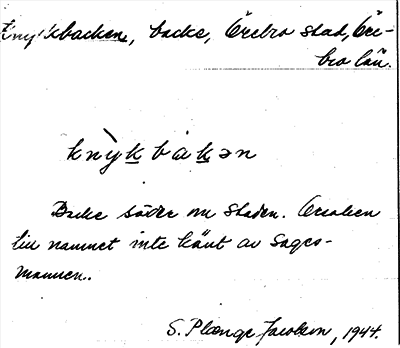 Knykbacken, backe, Örebro stad, Öre-
bro län.
knỳk bakən
Backe söder om staden. Orsaken
till namnet inte känt av sages-
mannen.
S. Plænge Jacobson, 1944.